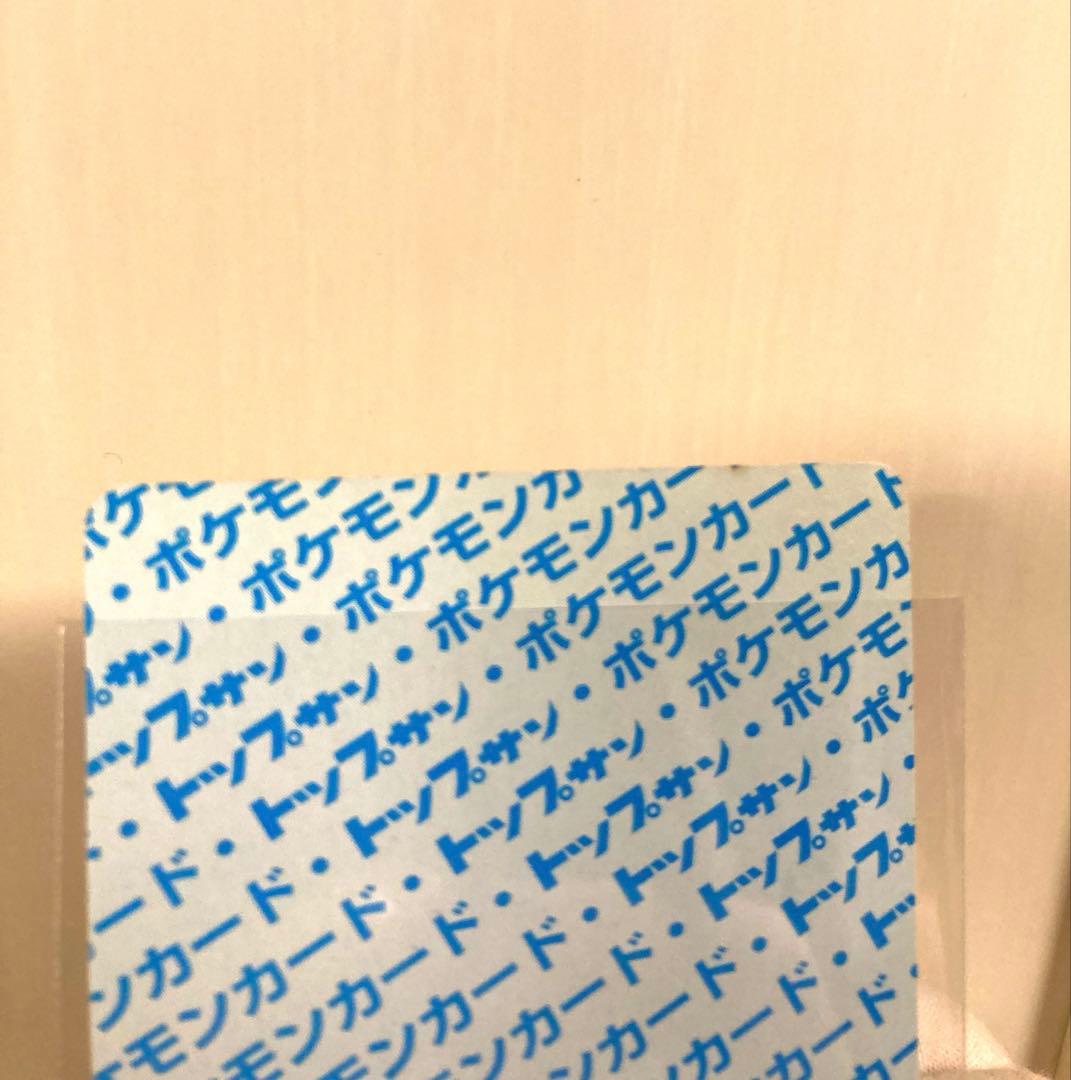 ポケモ
・ポケモ
プサン・ポケモン
トップサン・ポケモンカ
・トップサン・ポケモンカー
ード・トップサン・ポケモンカード
ンカード・トップサン・ポケモンカード
ケモンカード・トップサン・ポケモンカ
モンカード・トップサン・ポケモ
モンカード・トップサン・ポケ
ンカード・トップサン・
ンカード・トップサ
カード・ト
カード・
カ